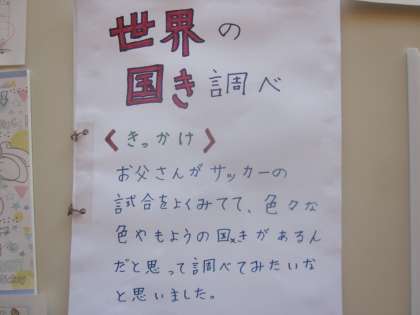 世界の
国き調べ
〈きっかけ〉
お父さんがサッカーの
試合をよくみてて、色々な
色やもようの国きがあるん
だと思って調べてみたいな
と思いました。